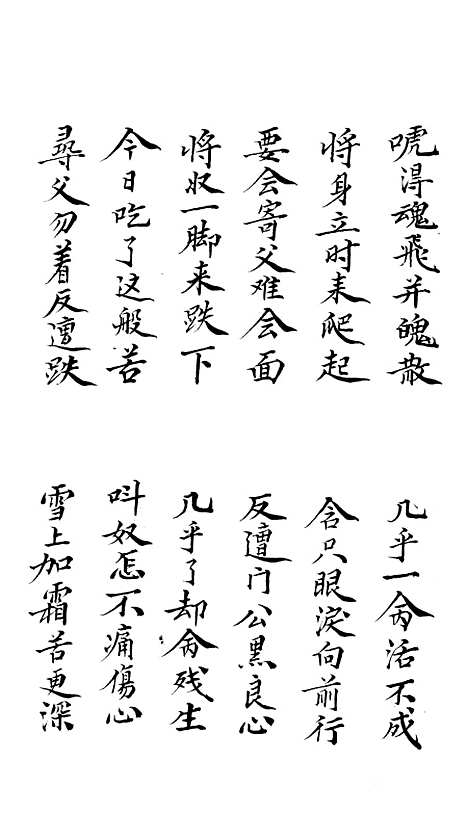 唬淂魂飛并魄散
几乎一命活不成
将身立时来爬起
含只眼淚向前行
要会寄父难会面
反遭门公黑良心
将収一脚来跌下
几乎了却命残生
今日吃了这般苦
呌奴怎不痛傷心
尋父勿着反遭跌
雪上加霜苦更深